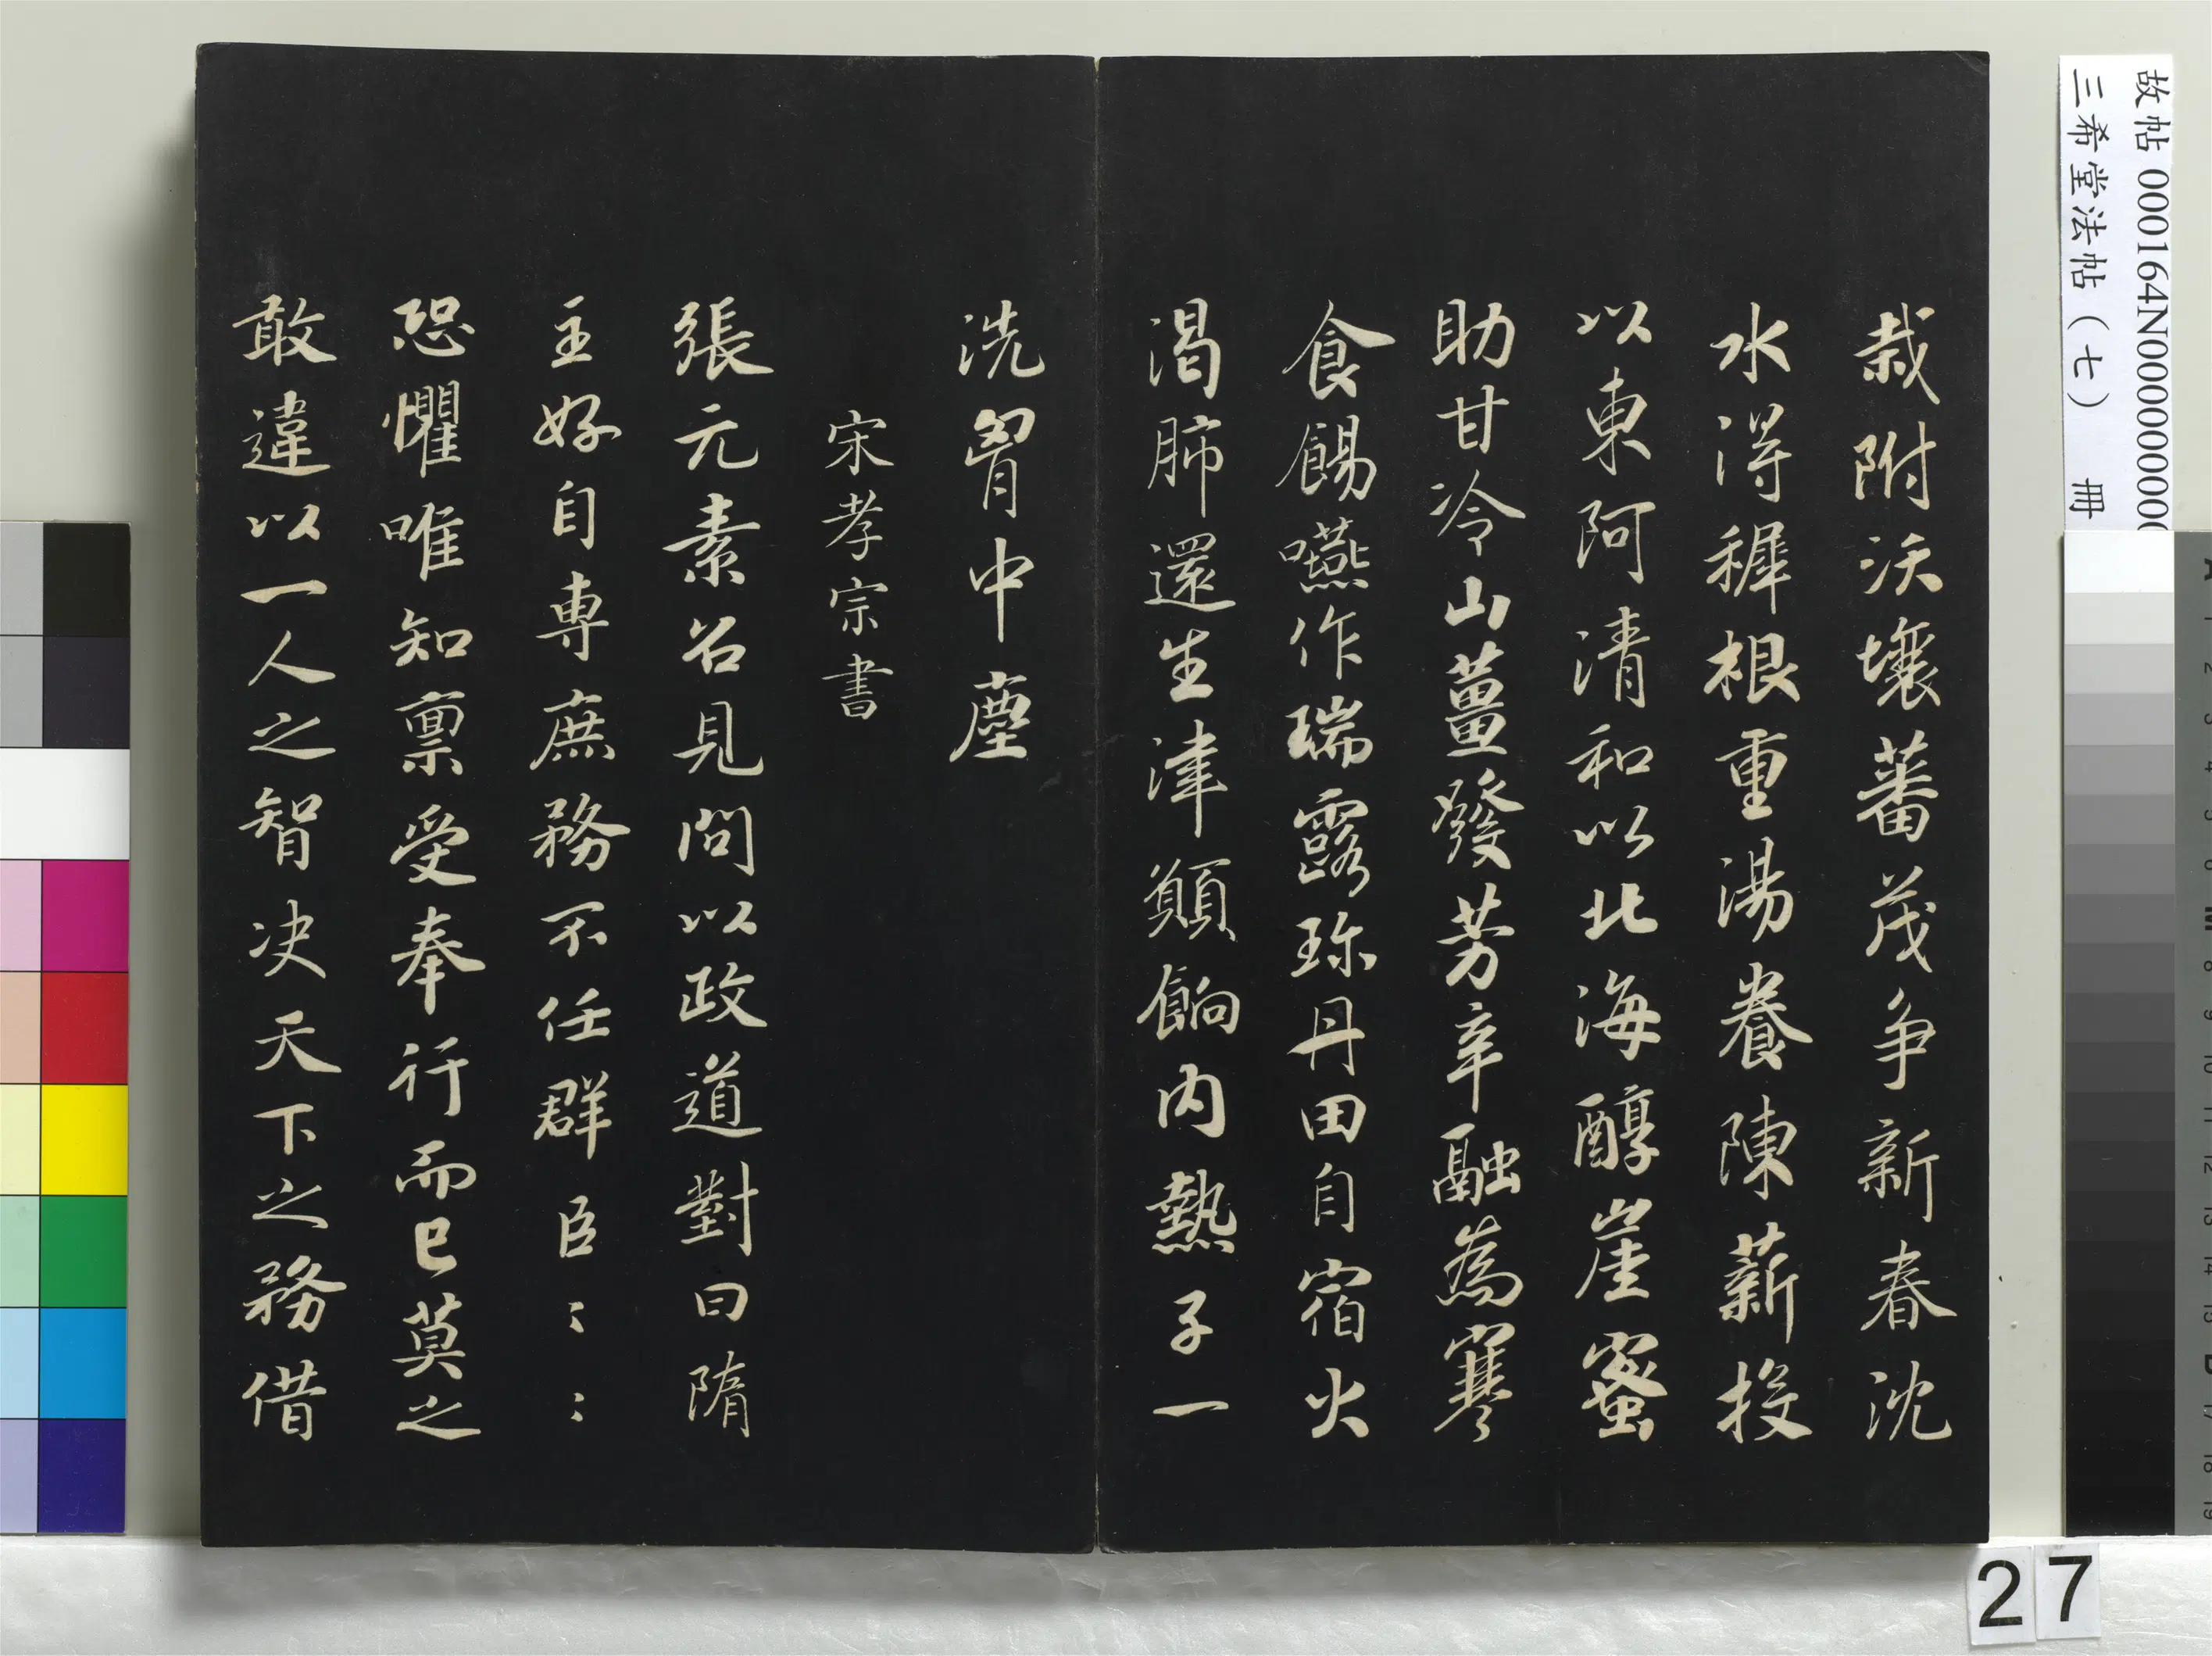 栽附沃壤蕃茂争新春沈
水得穉根重湯養陳薪投
以東阿清和以北海醇崖蜜
助甘冷山薑發芳辛融為寒
食餳嚥作瑞露珎丹田自宿火
渴肺還生津願餉内熱子一
洗胷中塵
宋孝宗書
張元素召見問以政道對曰隋
主好自専庶務不任群臣〻〻
恐懼唯知禀受奉行而已莫之
敢違以一人之智决天下之務借
故帖 000164N000000000
三希堂法帖（七） 冊
27